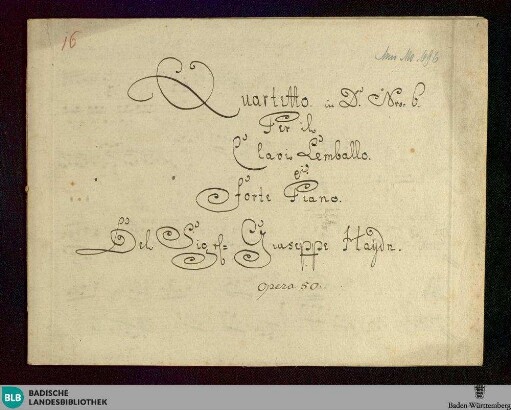 16
Quartetto. in D. Nro. 6.
Per il
Clavi Cembalo.
Forte Piano.
Del Sigre Giuseppe Haydn.
Opera 50.
BLB
BADISCHE
LANDESBIBLIOTHEK
Baden-Württemberg